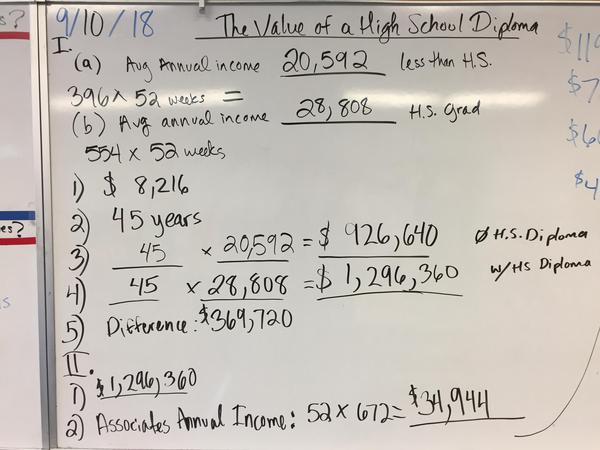 s?
9/10/18 The Value of a High School Diploma
I.
(a) Avg Annual income 20,592 less than H.S.
396 x 52 weeks =
(b) Avg annual income 28,808 H.S. Grad
554 x 52 weeks
1) $ 8,216
2) 45 years
3) 45 x 20,592 = $ 926,640 Ø H.S. Diploma
4) 45 x 28,808 = $ 1,296,360 w/ HS Diploma
5) Difference: $369,720
II.
1) $1,296,360
2) Associates Annual Income: 52 x 672 = $34,944
es?
s
$119
$7
$6
$4